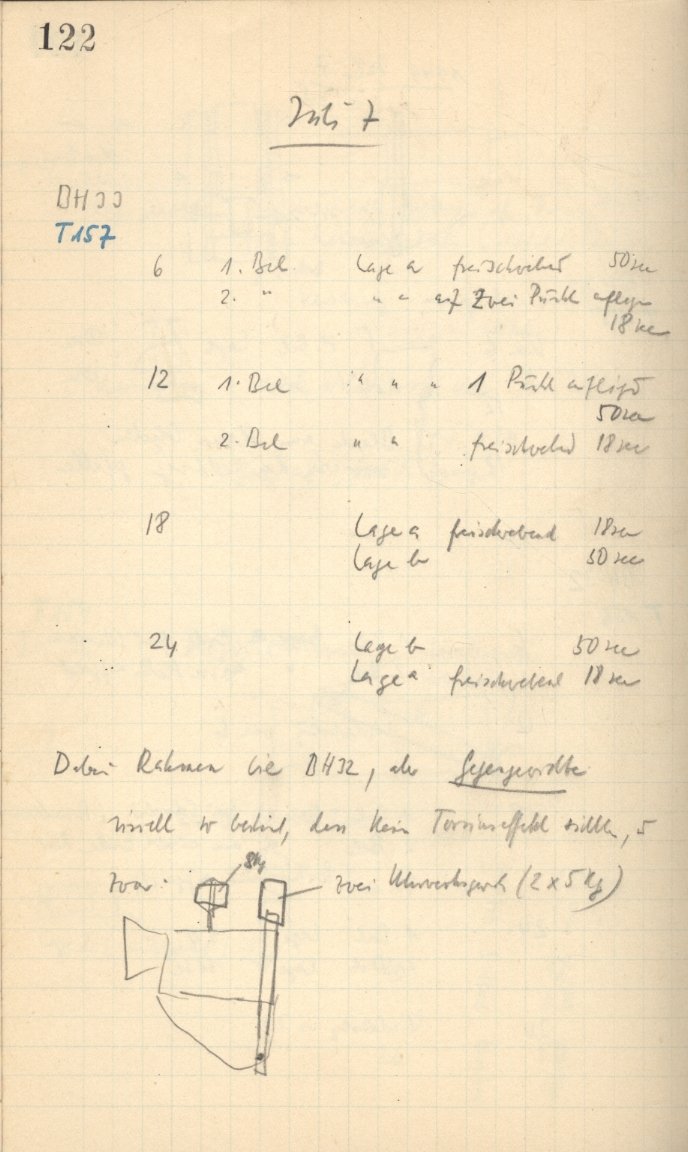 122
Juli 7
DH33
T157
6 1. Bel. Lage a freischwebend 50 sec
2. " " " auf zwei Punkte
18 sec
12 1. Bel " " " 1 Punkt
50 sec
2. Bel " " freischwebend 18 sec
18 Lage a freischwebend 18 sec
Lage b 50 sec
24 Lage b 50 sec
Lage a freischwebend 18 sec
Dabei Rahmen wie DH32, aber Gegengewichte
so, dass kein Torsionseffekt
zwar: 8kg zwei (2 x 5 kg)